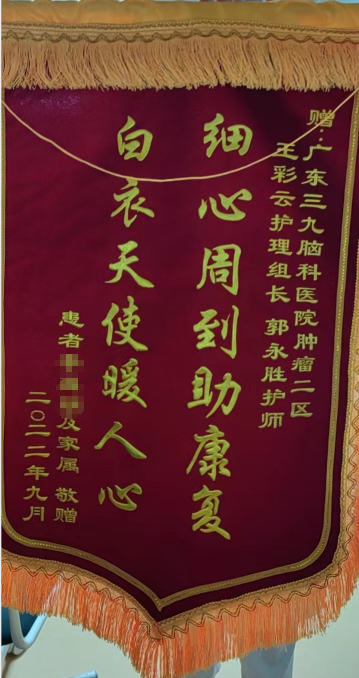 赠：广东三九脑科医院肿瘤二区
王彩云护理组长 郭永胜护师
细心周到助康复
白衣天使暖人心
患者及家属 敬赠
二〇二二年九月